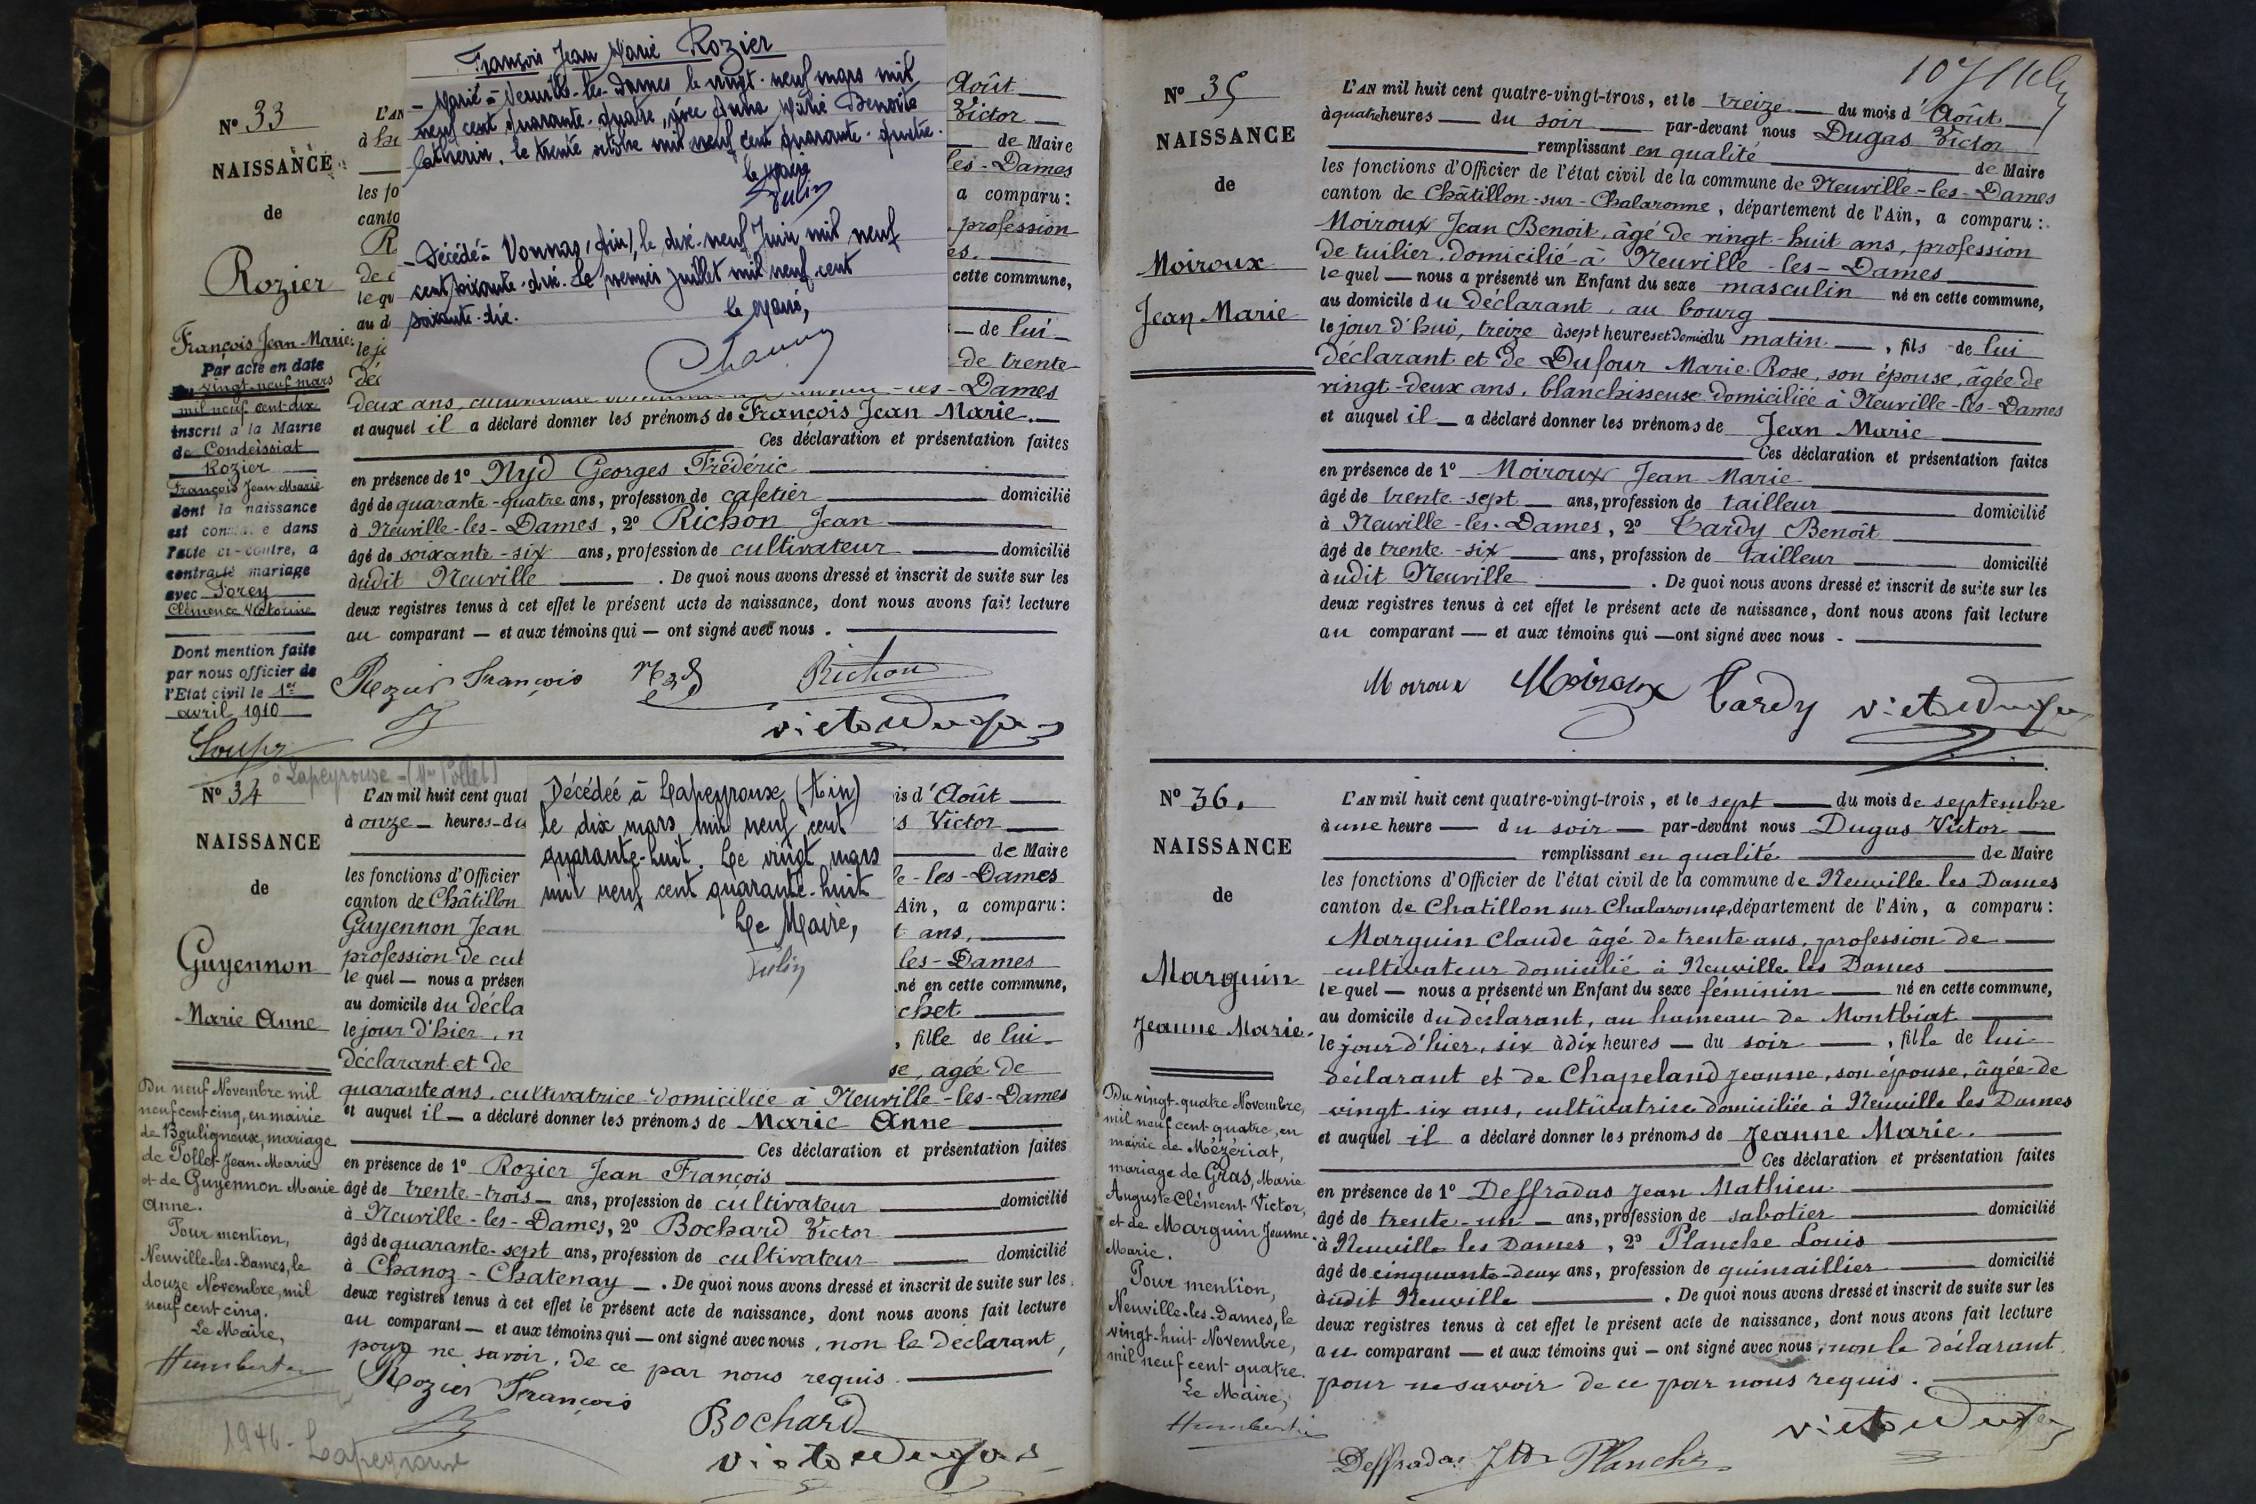 François Jean Marie Rozier
- Marié à Neuville-les-Dames le vingt-neuf mars mil
neuf cent quarante-quatre, avec Anna Marie Benoîte
Catherin, le trente octobre mil neuf cent quarante-quatre.
le Maire
- Décédé à Vonnas (Ain), le dix-neuf Juin mil neuf
cent soixante-dix. Le premier Juillet mil neuf cent
soixante-dix.
le Maire,
N° 33
NAISSANCE
de
Rozier
François Jean Marie
Par acte en date
du vingt-neuf mars
mil neuf cent dix
inscrit à la Mairie
de Condeissiat
Rozier
François Jean Marie
dont la naissance
est cons e dans
l'acte ci-contre, a
contracté mariage
avec Forey
Clémence Victorine
Dont mention faite
par nous officier de
l'Etat civil le 1er
avril 1910
L'AN
Août
à hu
Victor
de Maire
les fo
les-Dames
canto
a comparu :
R
profession
de d
es.
le qu
cette commune,
au d
le jo
- de lui
déc
de trente
deux ans, -les-Dames
et auquel il a déclaré donner les prénoms de François Jean Marie.
Ces déclaration et présentation faites
en présence de 1° Nyd Georges Frédéric
âgé de quarante-quatre ans, profession de cafetier domicilié
à Neuville-les-Dames, 2° Richon Jean
âgé de soixante-six ans, profession de cultivateur domicilié
audit Neuville . De quoi nous avons dressé et inscrit de suite sur les
deux registres tenus à cet effet le présent acte de naissance, dont nous avons fait lecture
au comparant — et aux témoins qui — ont signé avec nous .
Rozier François Nyd Richon
Victor Dugas
à Lapeyrouse - (Mme Pollet)
N° 34
NAISSANCE
de
Guyennon
Marie Anne
Du neuf Novembre mil
neuf cent cinq, en mairie
de Bouligneux, mariage
de Pollet Jean-Marie
et de Guyennon Marie
Anne.
Pour mention,
Neuville-les-Dames, le
douze Novembre, mil
neuf cent cinq.
Le Maire,
Humbert
1946 - Lapeyrouse
Décédée à Lapeyrouse (Ain)
le dix mars mil neuf cent
quarante-huit. Le vingt mars
mil neuf cent quarante-huit
Le Maire,
L'AN mil huit cent quat
is d'Août
à onze — heures — du
s Victor
de Maire
les fonctions d'Officier
e-les-Dames
canton de Châtillon
Ain, a comparu :
Guyennon Jean
t ans,
profession de cul
les-Dames
le quel — nous a présen
né en cette commune,
au domicile du décla
chet
le jour d'hier, n
, fille de lui
déclarant et de
se, âgée de
quarante ans, cultivatrice domiciliée à Neuville-les-Dames
et auquel il — a déclaré donner les prénoms de Marie Anne
Ces déclaration et présentation faites
en présence de 1° Rozier Jean François
âgé de trente-trois — ans, profession de cultivateur domicilié
à Neuville-les-Dames, 2° Bochard Victor
âgé de quarante-sept ans, profession de cultivateur domicilié
à Chanoz-Chatenay — . De quoi nous avons dressé et inscrit de suite sur les
deux registres tenus à cet effet le présent acte de naissance, dont nous avons fait lecture
au comparant — et aux témoins qui — ont signé avec nous, non le déclarant,
pour ne savoir, de ce par nous requis.
Rozier François
Bochard
Victor Dugas
N° 35
NAISSANCE
de
Moiroux
Jean Marie
L'AN mil huit cent quatre-vingt-trois, et le treize du mois d'Août
à quatre heures — du soir — par-devant nous Dugas Victor
remplissant en qualité de Maire
les fonctions d'Officier de l'état civil de la commune de Neuville-les-Dames
canton de Châtillon-sur-Chalaronne, département de l'Ain, a comparu :
Moiroux Jean Benoit, âgé de vingt-huit ans, profession
de tuilier, domicilié à Neuville-les-Dames
le quel — nous a présenté un Enfant du sexe masculin né en cette commune,
au domicile du déclarant, au bourg
le jour d'hui, treize à sept heures et demie du matin —, fils de lui
déclarant et de Dufour Marie Rose, son épouse, âgée de
vingt-deux ans, blanchisseuse domiciliée à Neuville-les-Dames
et auquel il — a déclaré donner les prénoms de Jean Marie
Ces déclaration et présentation faites
en présence de 1° Moiroux Jean Marie
âgé de trente-sept — ans, profession de tailleur domicilié
à Neuville-les-Dames, 2° Tardy Benoît
âgé de trente-six — ans, profession de tailleur domicilié
audit Neuville . De quoi nous avons dressé et inscrit de suite sur les
deux registres tenus à cet effet le présent acte de naissance, dont nous avons fait lecture
au comparant — et aux témoins qui — ont signé avec nous .
Moiroux Moiroux Tardy Victor Dugas
N° 36.
NAISSANCE
de
Marguin
Jeanne Marie.
Du vingt-quatre Novembre,
mil neuf cent quatre, en
mairie de Mézériat,
mariage de Gras, Marie
Auguste Clément Victor,
et de Marguin Jeanne
Marie.
Pour mention,
Neuville-les-Dames, le
vingt-huit Novembre,
mil neuf cent quatre.
Le Maire,
Humbert
L'AN mil huit cent quatre-vingt-trois, et le sept du mois de septembre
à une heure — du soir — par-devant nous Dugas Victor
remplissant en qualité de Maire
les fonctions d'Officier de l'état civil de la commune de Neuville les Dames
canton de Chatillon sur Chalaronne, département de l'Ain, a comparu :
Marguin Claude âgé de trente ans, profession de
cultivateur domicilié à Neuville les Dames
le quel — nous a présenté un Enfant du sexe féminin né en cette commune,
au domicile du déclarant, au hameau de Montbiat
le jour d'hier, six à dix heures — du soir —, fille de lui
déclarant et de Chapeland Jeanne, son épouse, âgée de
vingt-six ans, cultivatrice domiciliée à Neuville les Dames
et auquel il a déclaré donner les prénoms de Jeanne Marie.
Ces déclaration et présentation faites
en présence de 1° Deffradas Jean Mathieu
âgé de trente-un — ans, profession de sabotier domicilié
à Neuville les Dames, 2° Planche Louis
âgé de cinquante-deux ans, profession de quincaillier domicilié
audit Neuville . De quoi nous avons dressé et inscrit de suite sur les
deux registres tenus à cet effet le présent acte de naissance, dont nous avons fait lecture
au comparant — et aux témoins qui — ont signé avec nous, non le déclarant
pour ne savoir de ce par nous requis.
Victor Dugas
Deffradas Planche